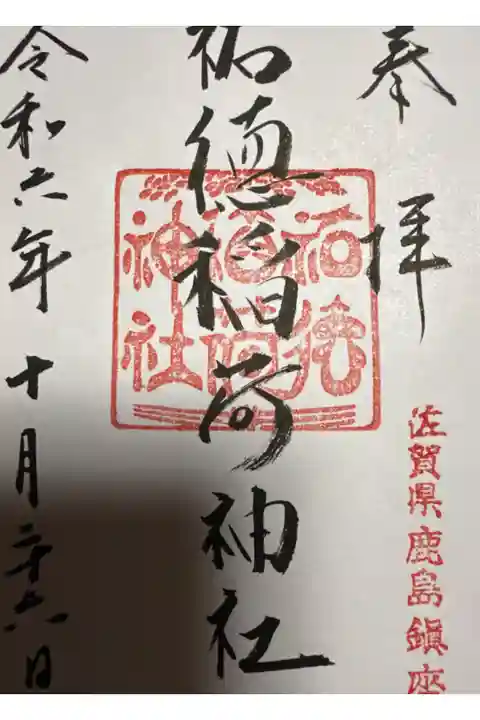 奉拝
佐賀県鹿島鎮座
祐徳稲荷神社
祐徳稲荷神社
令和六年十月二十六日